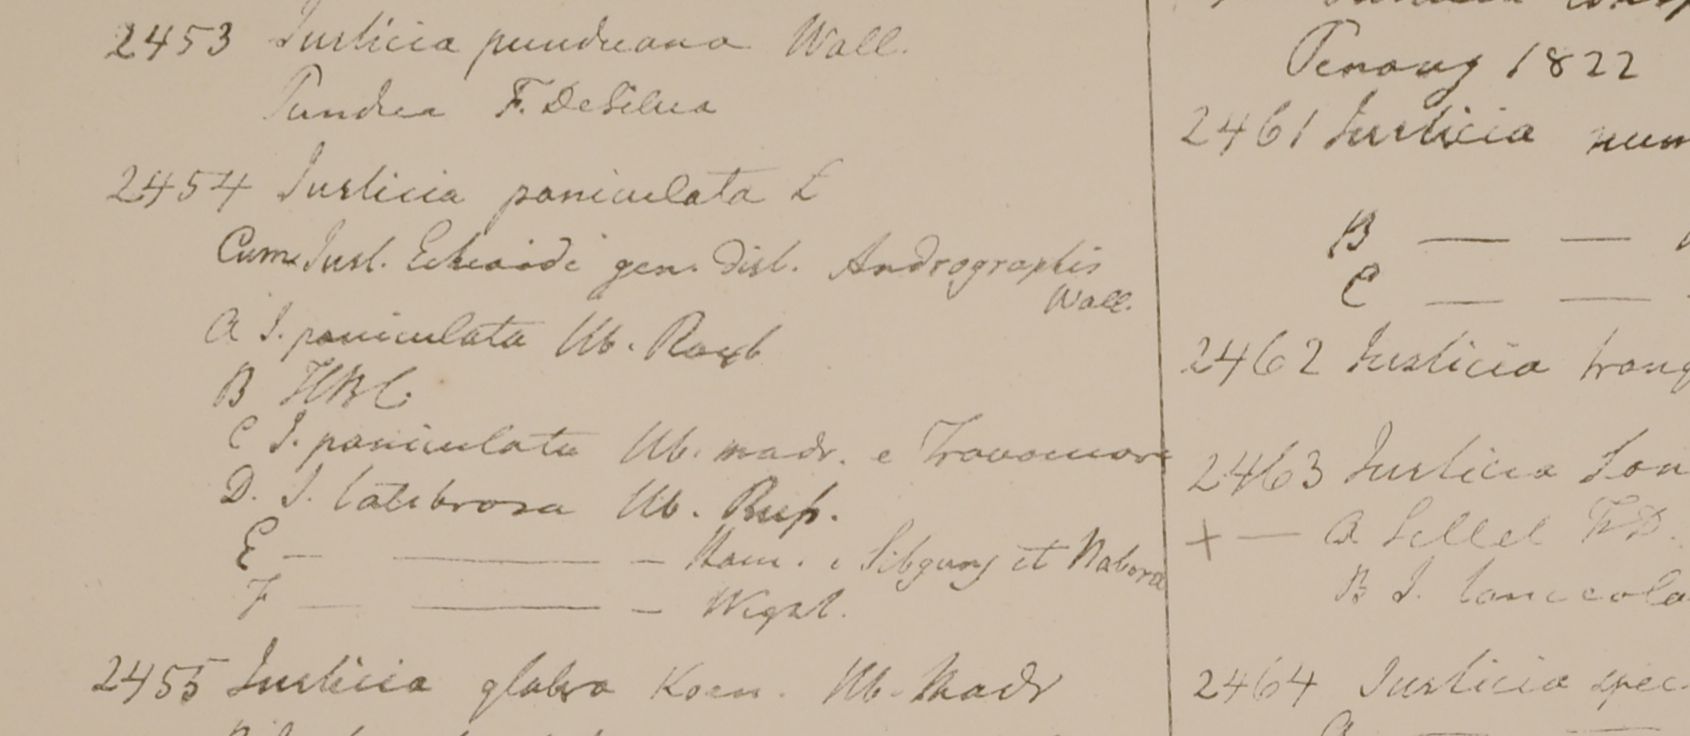 2453 Justicia punduana Wall.
Pundua F. DeSilva
2454 Justicia paniculata L
Cum Just. Echioide gen. dist. Andrographis
Wall.
A J. paniculata Hb. Roxb
B HBC.
C J. paniculata Hb. madr. e Travancore
D. J. latebrosa Hb. Russ.
E — — — Ham. e Sibgunj et Nabora
F — — — Wight.
2455 Justicia glabra Koen. Hb. Madr
Penang 1822
2461 Justicia num
B — —
C — —
2462 Justicia tranq
2463 Justicia
+ — A Sillet FD.
B J. lanceola
2464 Justicia spec.